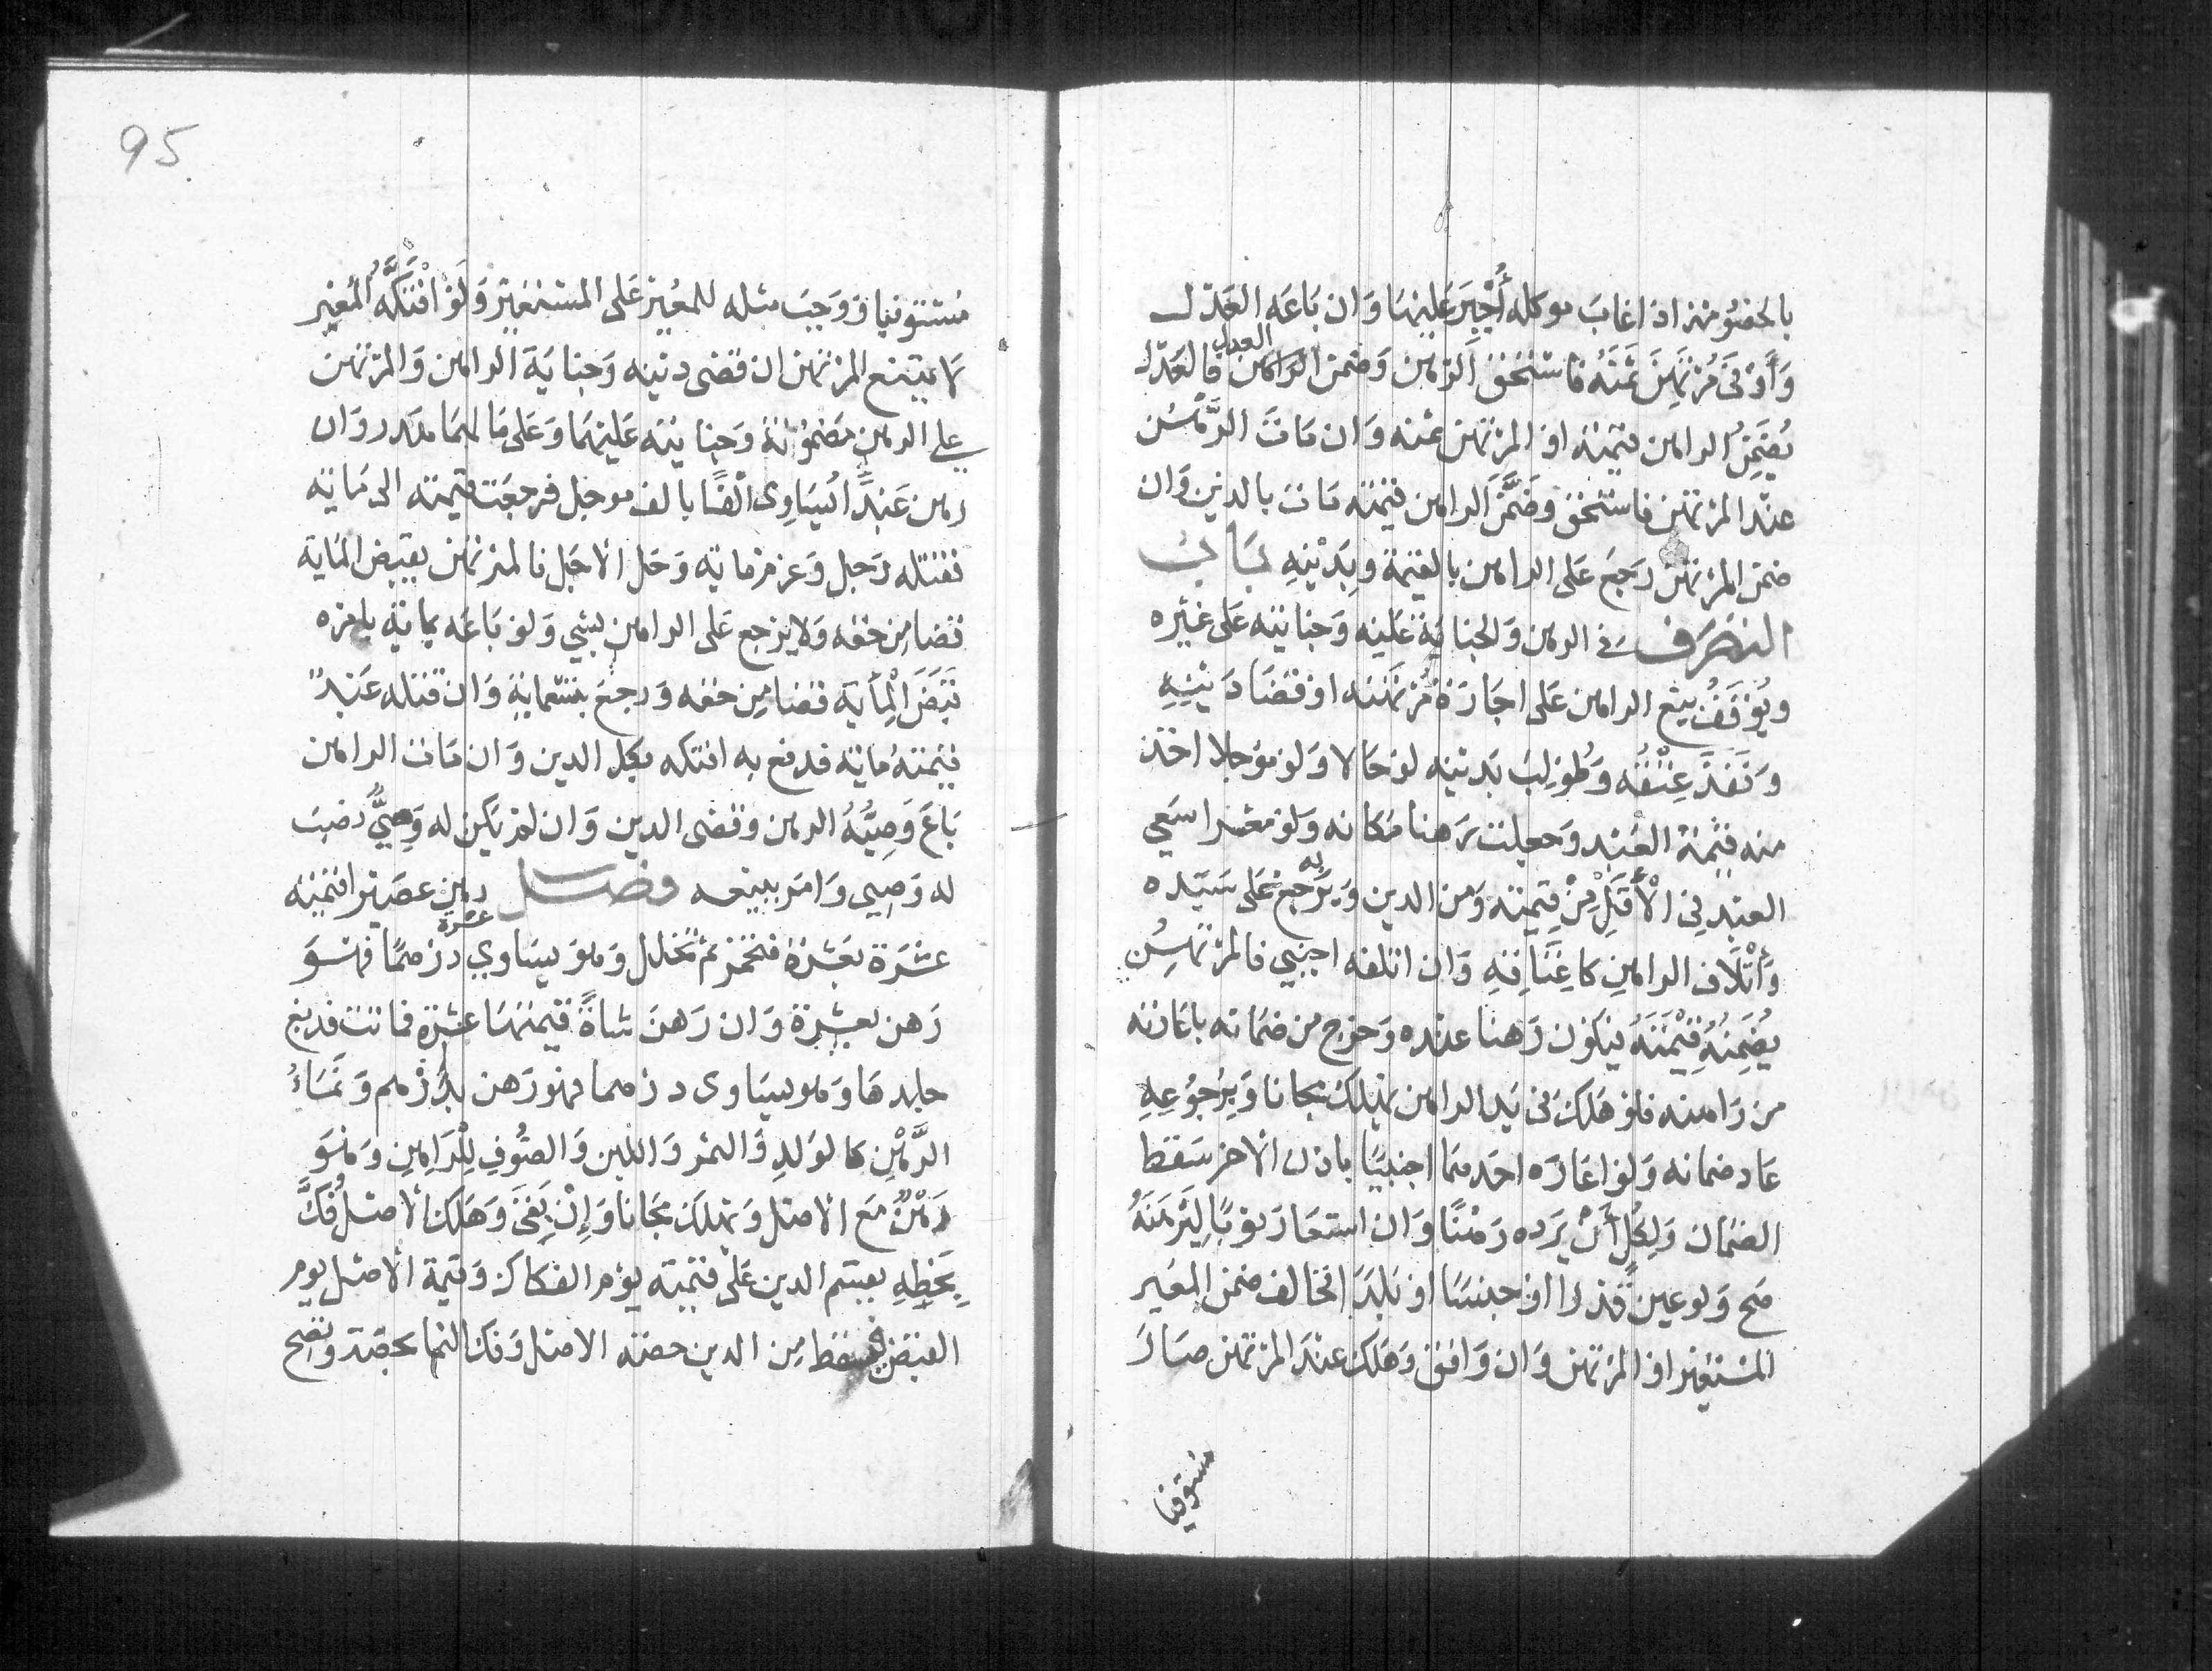 بالخصومة اذا غاب موكله أُجْبِرَ عليها وَان بَاعَه العَدل
وَأَوْفَى مُرْتَهِنَ ثَمَنَهُ فاستُحق الرهن وَضمن الراهن فالعَدل
العدل
يُضَمِّنُ الراهن قيمته او المرتهن ثمنه وَان مَاتَ الرَّهْن
عند المرتهن فاستحق وَضَمَّنَ الراهن قيمته مَات بالدين وَان
ضمن المرتهن رجَع عَلى الراهن بالقيمة وبِدَيْنِهِ بَاب
التصَرف في الرهن وَالجناية عَليه وَجنايته عَلى غيره
ويُوْقَفُ بيع الراهن عَلى اجَازة مُرْتهنه او قضَا دَيْنِهِ
وَنَفَذَ عِتْقُه وَطُولِبَ بدينه لو حَالا وَلو موَجلا اخذ
منه قِيْمَة العَبد وَجعلت رَهنا مَكانه وَلو معسرا سَعي
العبد في الْأَقَلِّ مِنْ قِيمته وَمن الدين وَيَرجع به عَلى سَيّده
وَاتْلَاف الراهن كاعْتَاقِهِ وَان اتلفه اجنبي فالمرتهن
يُضَمِّنُهُ قيْمَتَهُ فيكون رَهنا عنده وَخرج من ضمَانه باعَارته
من رَاهنه فلو هَلك في يَد الراهن يَهلك مجانا وَبِرُجُوعِهِ
عَاد ضمانه وَلو اعَارَه احَدهمَا اجنبيًا باذن الاخر سَقط
الضمَان وَلِكُلٍّ أَنْ يَرده رَهْنًا وَان استعَارَ ثوبًا لِيَرْهَنَهُ
صَح وَلو عين قدرا او جنسًا او بَلَدَا فخالف ضمن المعير
المستعير او المرتهن وَان وَافق وَهَلك عند المرتهن صَارَ
مستوفيا
95
مُستوفيا وَوَجبَ مثله للمعير عَلى المستعير وَلَوْ افْتَكَّهُ المُعير
لا يمتنع المرتهن ان قضى دينه وَجنايَة الراهن وَالمرتهن
على الرهن مَضمونة وَجنايته عَليهمَا وَعَلى مَالهمَا هدر وَان
رهن عَبدًا يُسَاوِي ألْفًا بالف موجل فرجعَت قيمته الى مَاية
فقتله رَجل وَغرم ماية وَحَل الاجَل فالمرتهن يقبض الماية
قضا من حقه وَلا يرجع عَلى الراهن بشي وَلو بَاعَه بماية بامره
قَبَضَ الْمِأيَة قضا من حقه وَرجَعَ بتسعماية وَان قتله عَبدٌ
قيمتهُ مَاية فدفع به افتكه بكل الدين وَان مَات الراهن
بَاعَ وَصِيُّهُ الرهن وَقضى الدين وَان لم يكن له وَصِيٌّ نصبَ
له وَصِي وَامَر ببيعه فصل رهن عصَيرا قيمته
عشَرة بعَشرة فتخمر ثم تخلل وَهوَ يسَاوي عشرة درهمًا فهوَ
رَهن بعشرة وَان رَهن شاةً قيمتهَا عشرة فماتت فدبغ
جلدهَا وَهو يسَاوى درهما فهو رَهن بِدِرْهم وَنَمَاءُ
الرَّهْنِ كالوَلدِ وَالثمر وَاللبن وَالصُّوفِ لِلْرَاهِنِ وَهُوَ
رَهْنٌ مَعَ الاصل وَيَهلك مجَانا وَإِنْ بَقِيَ وَهَلك الاصل فُكَّ
بِحَظِّهِ يقسم الدين عَلى قيمته يوم الفكاك وَقيمة الاصل يوم
القبض فيسقط مِن الدين حصته الاصل وَفك النما بحصته وتصح